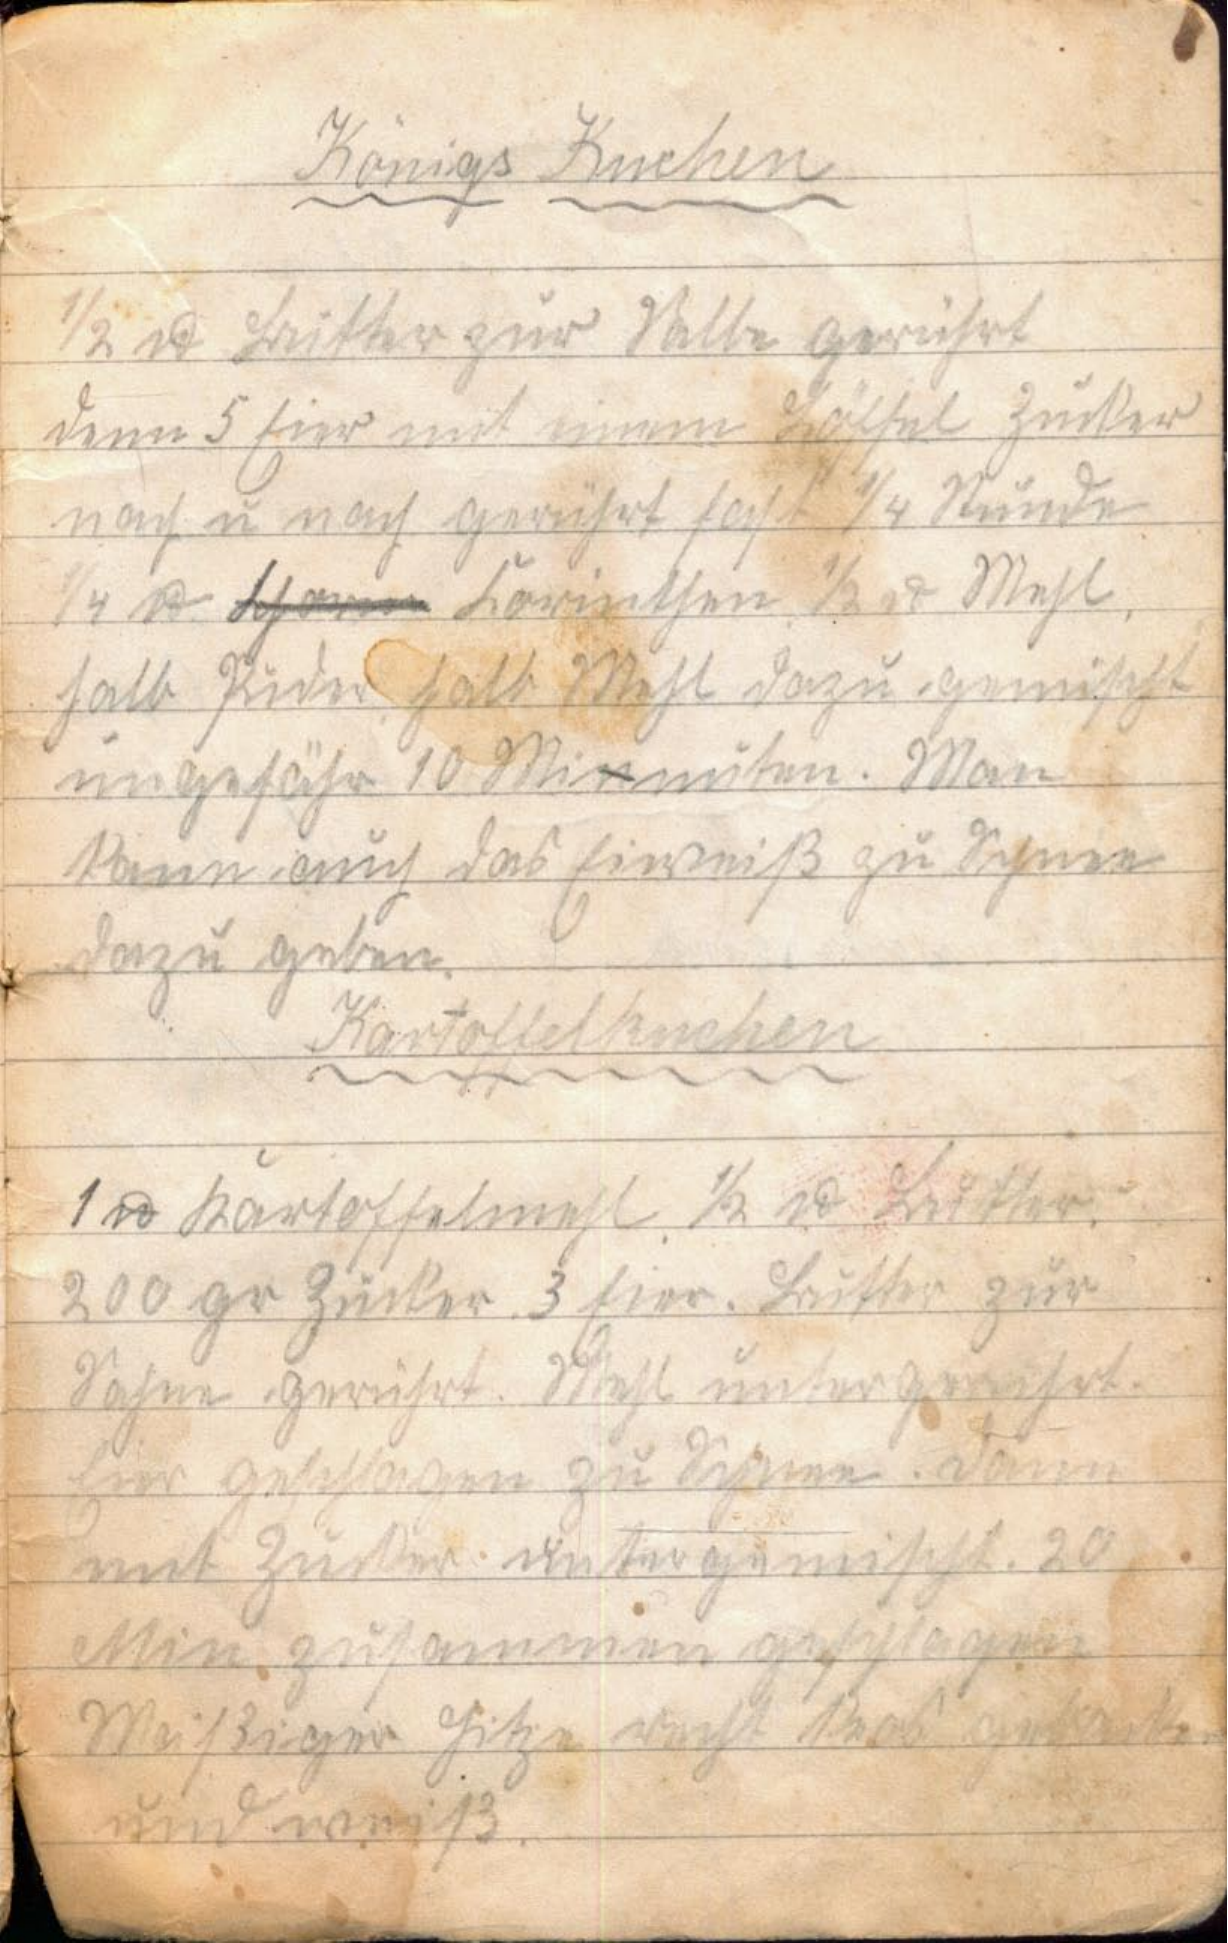 Königs Kuchen
1/2 ℔ Butter zur Salbe gerührt
denn 5 Eier mit einem Löffel Zucker
nach u nach gerührt fast 1/4 Stunde
1/4 ℔ Korinthen 1/2 ℔ Mehl,
halb Puder halb Mehl dazu gemischt
ungefähr 10 Minnuten. Man
kann auch das Eierweiß zu Schnee
dazu geben.
Kartoffelkuchen
1 ℔ Kartoffelmehl, 1/2 ℔ Butter.
200 gr Zucker 3 Eier. Butter zur
Sahne gerührt. Mehl untergerührt.
Eier geschlagen zu Schnee. Dann
mit Zucker untergemischt. 20
Min. zusammen geschlagen
Mäßiger Hitze recht gebacken
und weiß.